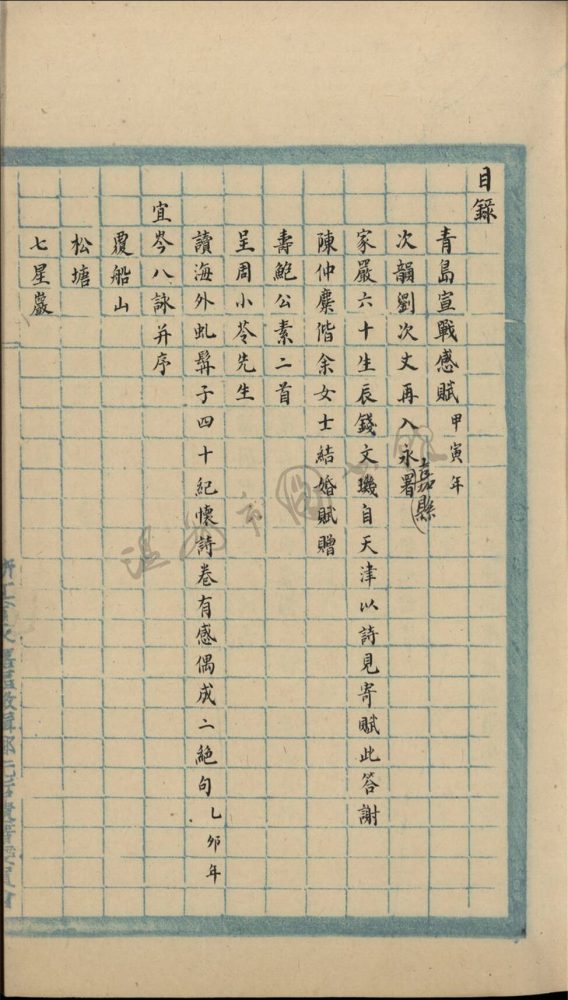 目錄
青島宣戰感賦 甲寅年
次韻劉次丈再入永嘉縣署
家嚴六十生辰錢文璣自天津以詩見寄賦此答謝
陳仲麋偕余女士結婚賦贈
壽鮑公素二首
呈周小苓先生
讀海外虬髯子四十紀懷詩卷有感偶成二絕句 乙卯年
宜岑八詠并序
覆船山
松塘
七星巖
溫州市圖書館